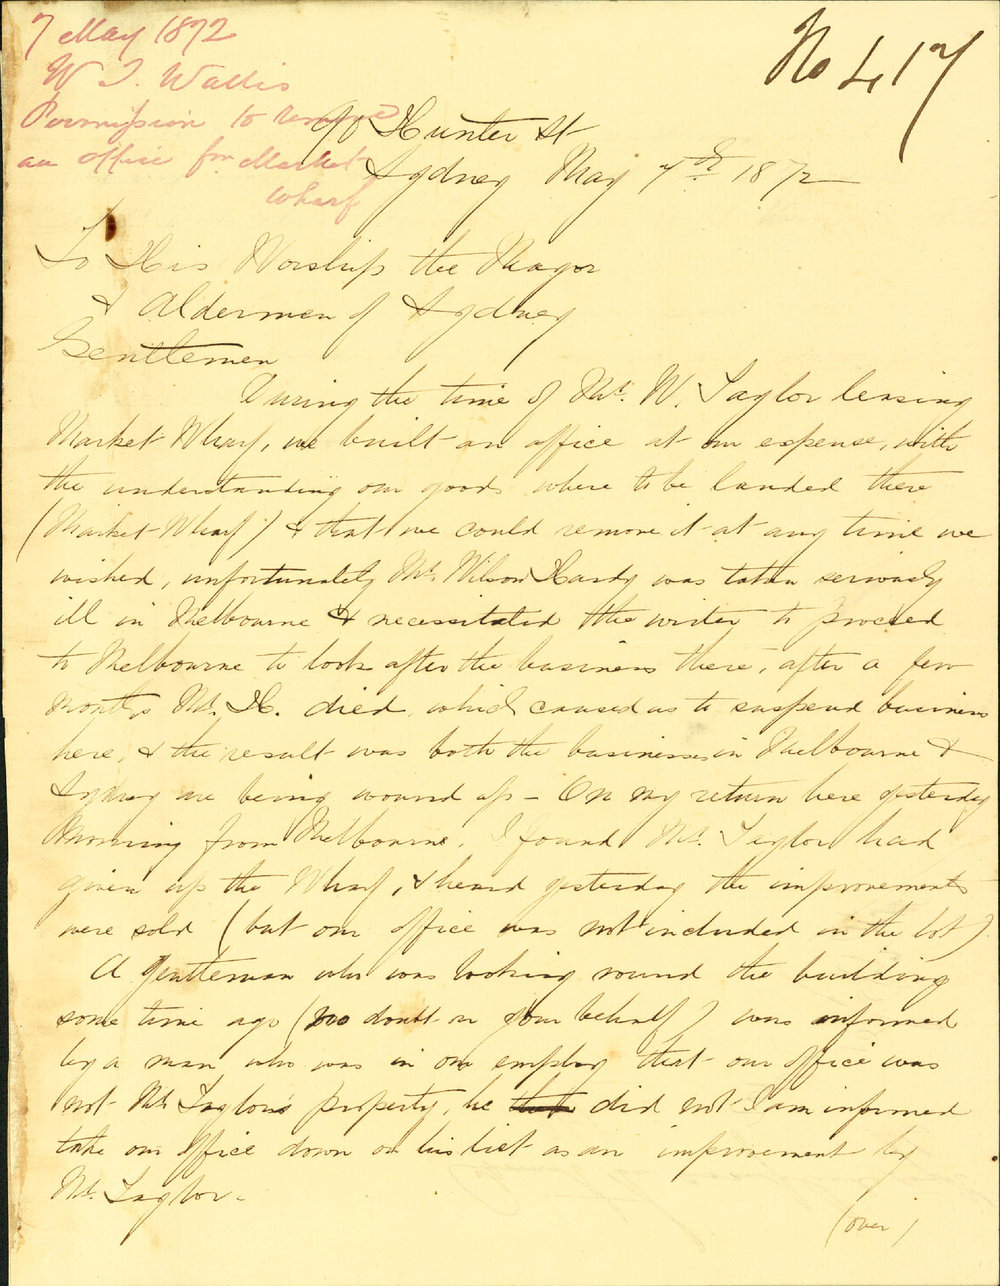 7 May 1872
W. J. Wallis
Permission to remove
an office fm Market
Wharf
No 417
90 Hunter St
Sydney May 7th 1872
To His Worship the Mayor
& Aldermen of Sydney
Gentlemen
During the time of Mr. W. Taylor leasing
Market Wharf, we built an office at our expense, with
the understanding our goods where to be landed there
(Market Wharf) & that we could remove it at any time we
wished, unfortunately Mr. Wilson Hardy was taken seriously
ill in Melbourne & necessitated the writer to proceed
to Melbourne to look after the business there, after a few
months Mr. H. died, which caused us to suspend business
here, & the result was both the businesses in Melbourne &
Sydney are being wound up - On my return here yesterday
morning from Melbourne, I found Mr. Taylor had
given up the Wharf, & heard yesterday the improvements
were sold (but our office was not included in the lot).
A Gentleman who was looking round the building
some time ago (no doubt on your behalf) was informed
by a man who was in our employ that our office was
not Mr Taylor's property, he did not I am informed
take our office down on his list as an improvement by
Mr. Taylor.
(over)